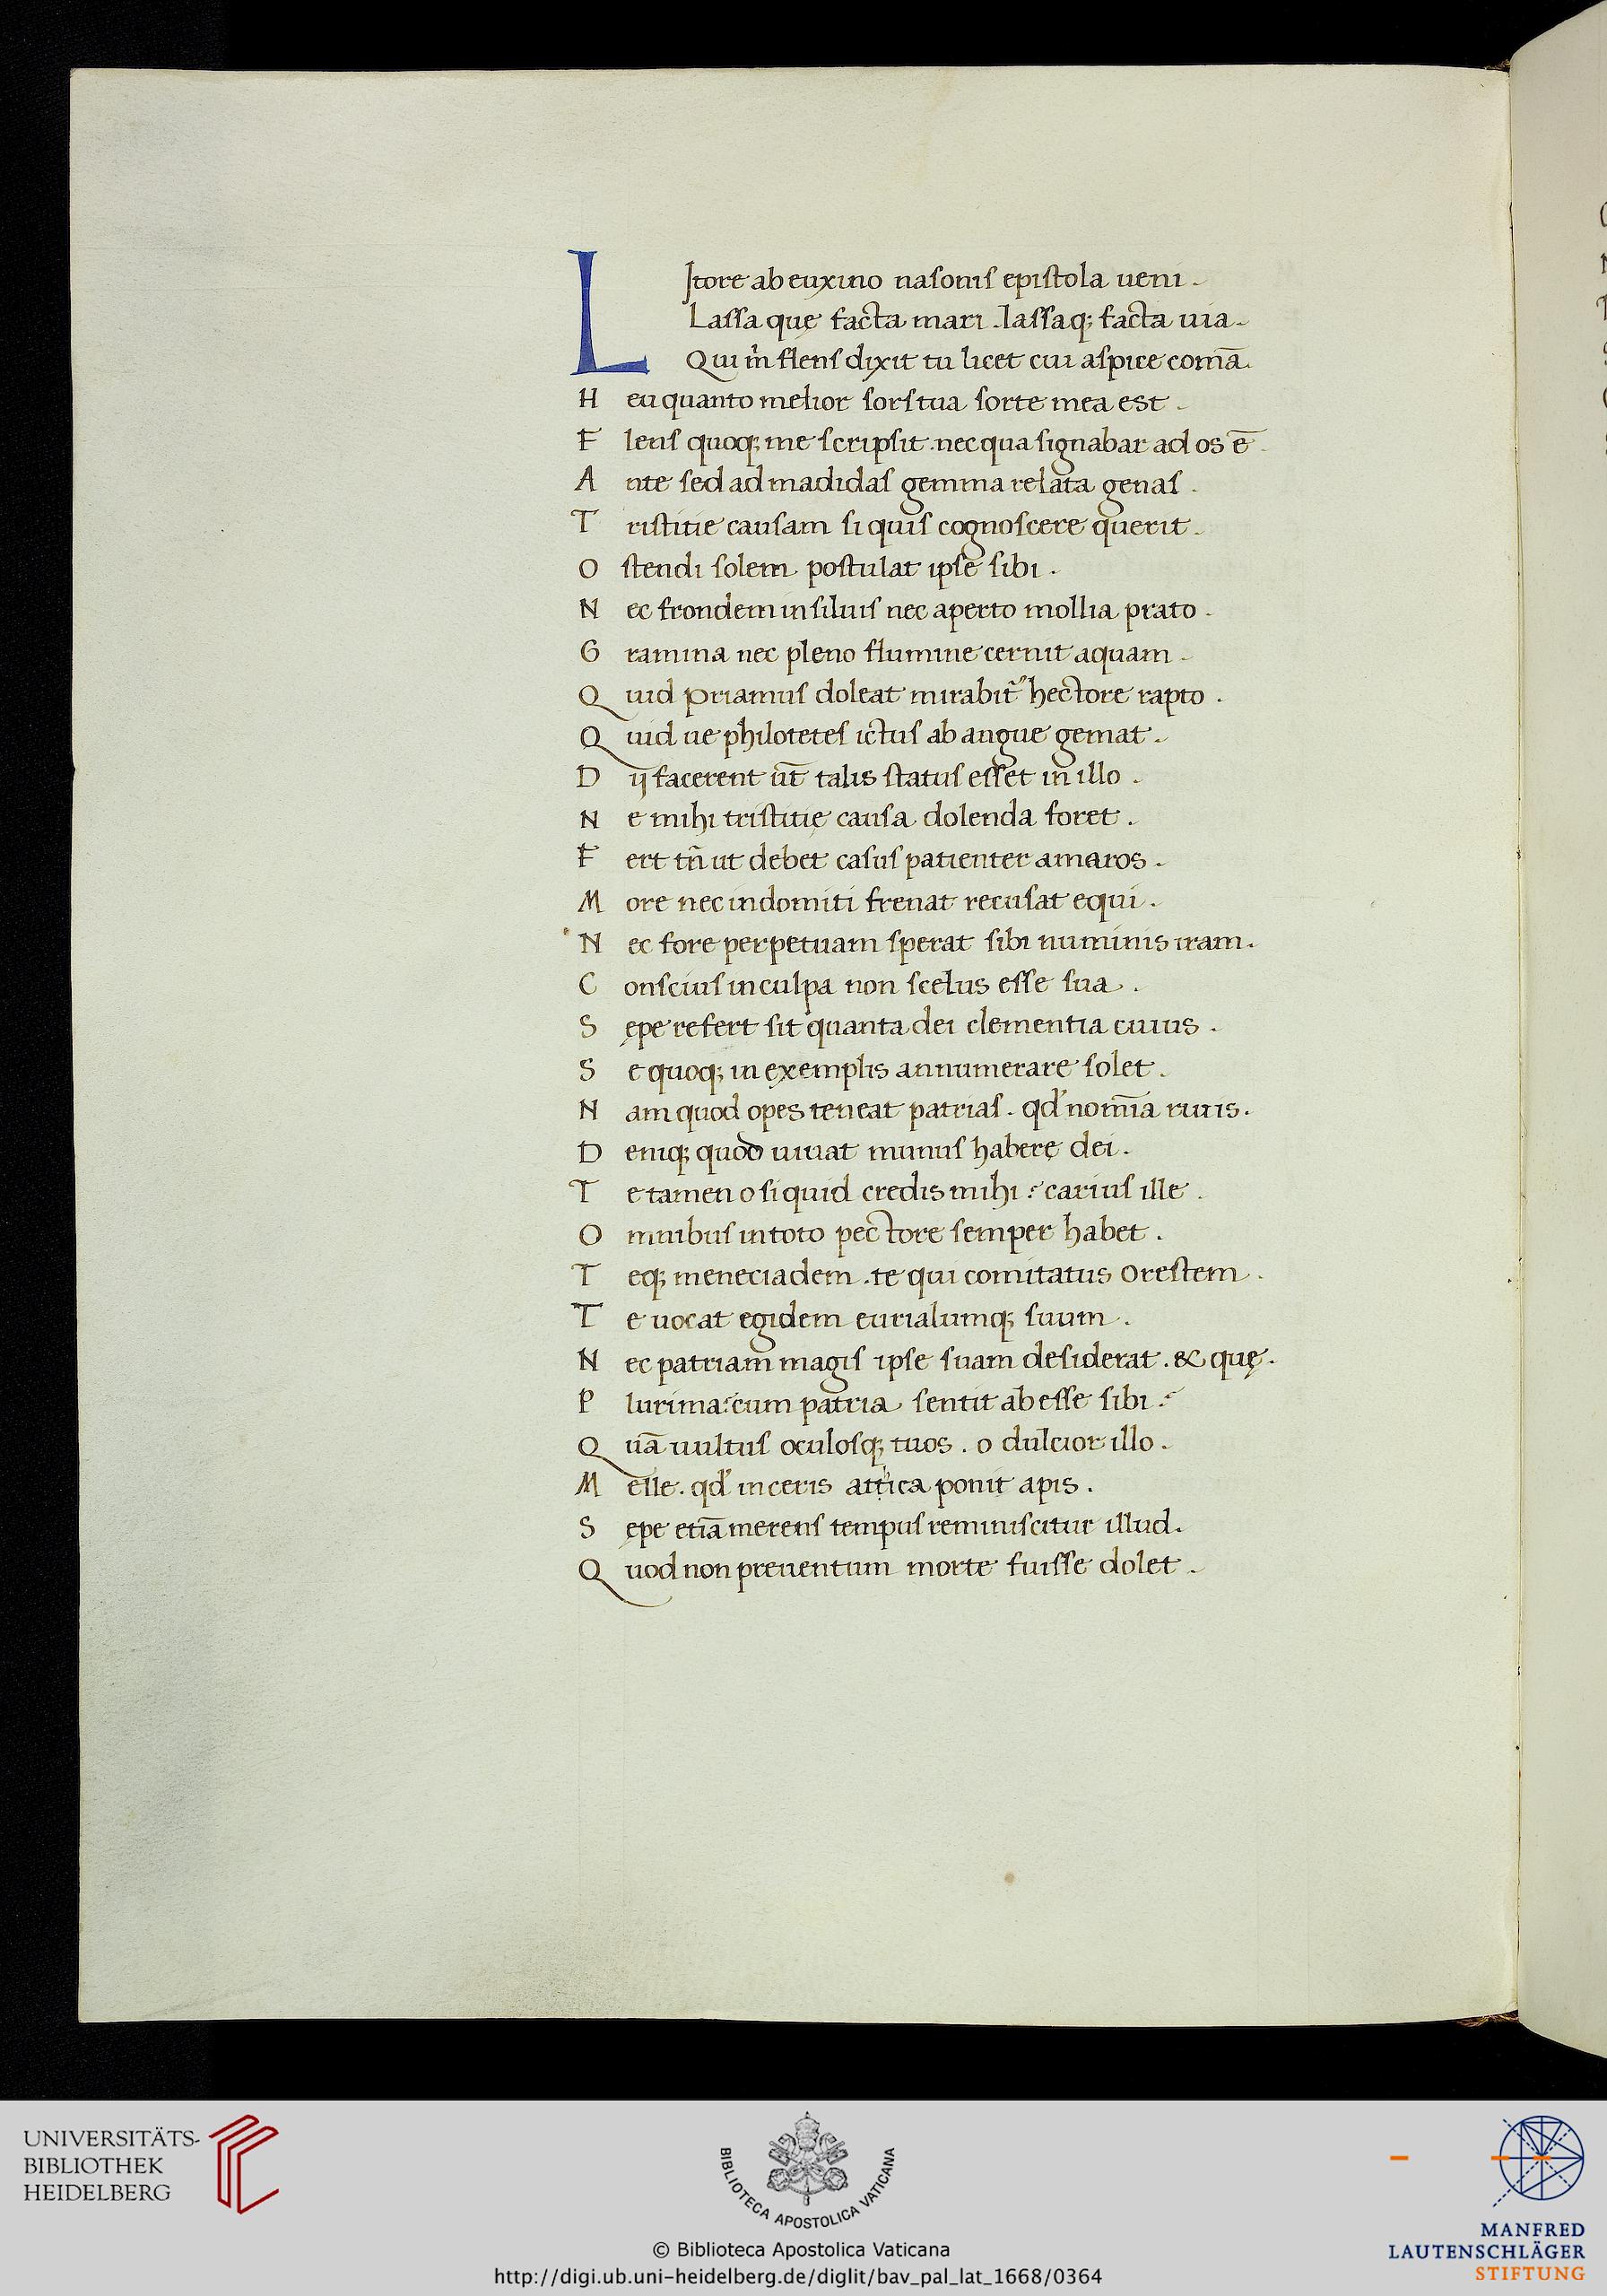 LJtore ab euxino nasonis epistola ueni .
Lassa quę facta mari . lassaq; facta uia .
Qui m̃ flens dixit tu licet cui aspice comā .
H eu quanto melior sors tua sorte mea est .
F lens quoq; me scripsit . nec qua signabar ad os ē .
A nte sed ad madidas gemma relata genas .
T ristitie causam si quis cognoscere querit .
O stendi solem postulat ipse sibi .
N ec frondem in siluis nec aperto mollia prato .
G ramina nec pleno flumine cernit aquam .
Q uid priamus doleat mirabit᷑ hectore rapto .
Q uid ue philotetes ictus ab angue gemat .
D ij facerent ut̄ talis status esset in illo .
N e mihi tristitię causa dolenda foret .
F ert tñ ut debet casus patienter amaros .
M ore nec indomiti frenat recusat equi .
N ec fore perpetuam sperat sibi numinis iram .
C onscius in culpa non scelus esse sua .
S ępe refert sit quanta dei clementia cuius .
S e quoq; in exemplis annumerare solet .
N am quod opes teneat patrias . qd' nomīa ciuis .
D eniq; quod uiuat munus haberę dei .
T e tamen o si quid credis mihi : carius ille .
O mnibus in toto pectore semper habet .
T eq; meneciadem . te qui comitatus orestem .
T e uocat egidem eurialumq; suum .
N ec patriam magis ipse suam desiderat . & quę .
P lurima: cum patria sentit abesse sibi :
Q uā uultus oculosq; tuos . o dulcior illo .
M elle . qd' in ceris attica ponit apis .
S ępe etiā merens tempus reminiscitur illud .
Q uod non preuentum morte fuisse dolet .
UNIVERSITÄTS-
BIBLIOTHEK
HEIDELBERG
BIBLIOTECA APOSTOLICA VATICANA
© Biblioteca Apostolica Vaticana
http://digi.ub.uni-heidelberg.de/diglit/bav_pal_lat_1668/0364
MANFRED
LAUTENSCHLÄGER
STIFTUNG